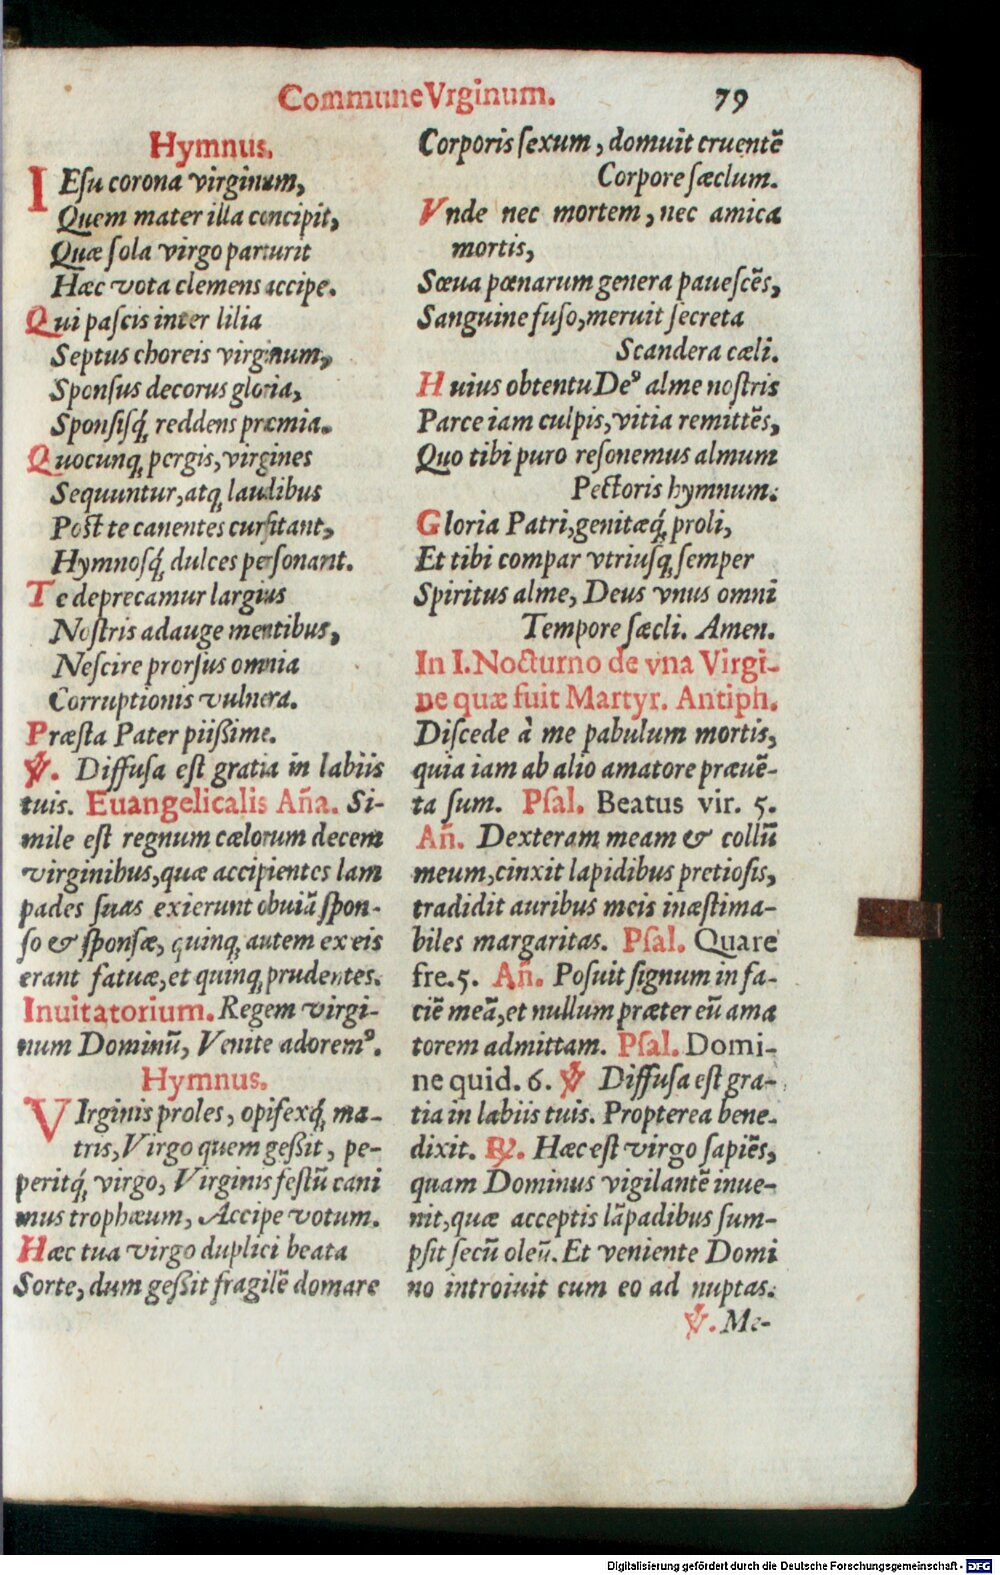 Commune Vrginum. 79
Hymnus.
IEsu corona virginum,
Quem mater illa concipit,
Quæ sola virgo parturit
Hæc vota clemens accipe.
Qui pascis inter lilia
Septus choreis virginum,
Sponsus decorus gloria,
Sponsisq́; reddens præmia.
Quocunq; pergis, virgines
Sequuntur, atq; laudibus
Post te canentes cursitant,
Hymnosq́; dulces personant.
Te deprecamur largius
Nostris adauge mentibus,
Nescire prorsus omnia
Corruptionis vulnera.
Præsta Pater piißime.
℣. Diffusa est gratia in labiis
tuis. Euangelicalis Aña. Si-
mile est regnum cælorum decem
virginibus, quæ accipientes lam
pades suas exierunt obuiā spon-
so & sponsæ, quinq; autem ex eis
erant fatuæ, et quinq; prudentes.
Inuitatorium. Regem virgi-
num Dominū, Venite adoremꝰ.
Hymnus.
VIrginis proles, opifexq́; ma-
tris, Virgo quem geßit, pe-
peritq́; virgo, Virginis festū cani
mus trophæum, Accipe votum.
Hæc tua virgo duplici beata
Sorte, dum geßit fragilē domare
Corporis sexum, domuit cruentē
Corpore sæclum.
Vnde nec mortem, nec amica
mortis,
Sæua pœnarum genera pauescēs,
Sanguine fuso, meruit secreta
Scandera cæli.
Huius obtentu Deꝰ alme nostris
Parce iam culpis, vitia remittēs,
Quo tibi puro resonemus almum
Pectoris hymnum.
Gloria Patri, genitæq́; proli,
Et tibi compar vtriusq; semper
Spiritus alme, Deus vnus omni
Tempore sæcli. Amen.
In I. Nocturno de vna Virgi-
ne quæ fuit Martyr. Antiph.
Discede à me pabulum mortis,
quia iam ab alio amatore præuē-
ta sum. Psal. Beatus vir. 5.
Añ. Dexteram meam & collū
meum, cinxit lapidibus pretiosis,
tradidit auribus meis inæstima-
biles margaritas. Psal. Quare
fre. 5. Añ. Posuit signum in fa-
ciē meā, et nullum præter eū ama
torem admittam. Psal. Domi-
ne quid. 6. ℣ Diffusa est gra-
tia in labiis tuis. Propterea bene-
dixit. ℟. Hæc est virgo sapiēs,
quam Dominus vigilantē inue-
nit, quæ acceptis lāpadibus sum-
psit secū oleū. Et veniente Domi
no introiuit cum eo ad nuptas.
℣. Me-
Digitalisierung gefördert durch die Deutsche Forschungsgemeinschaft - DFG